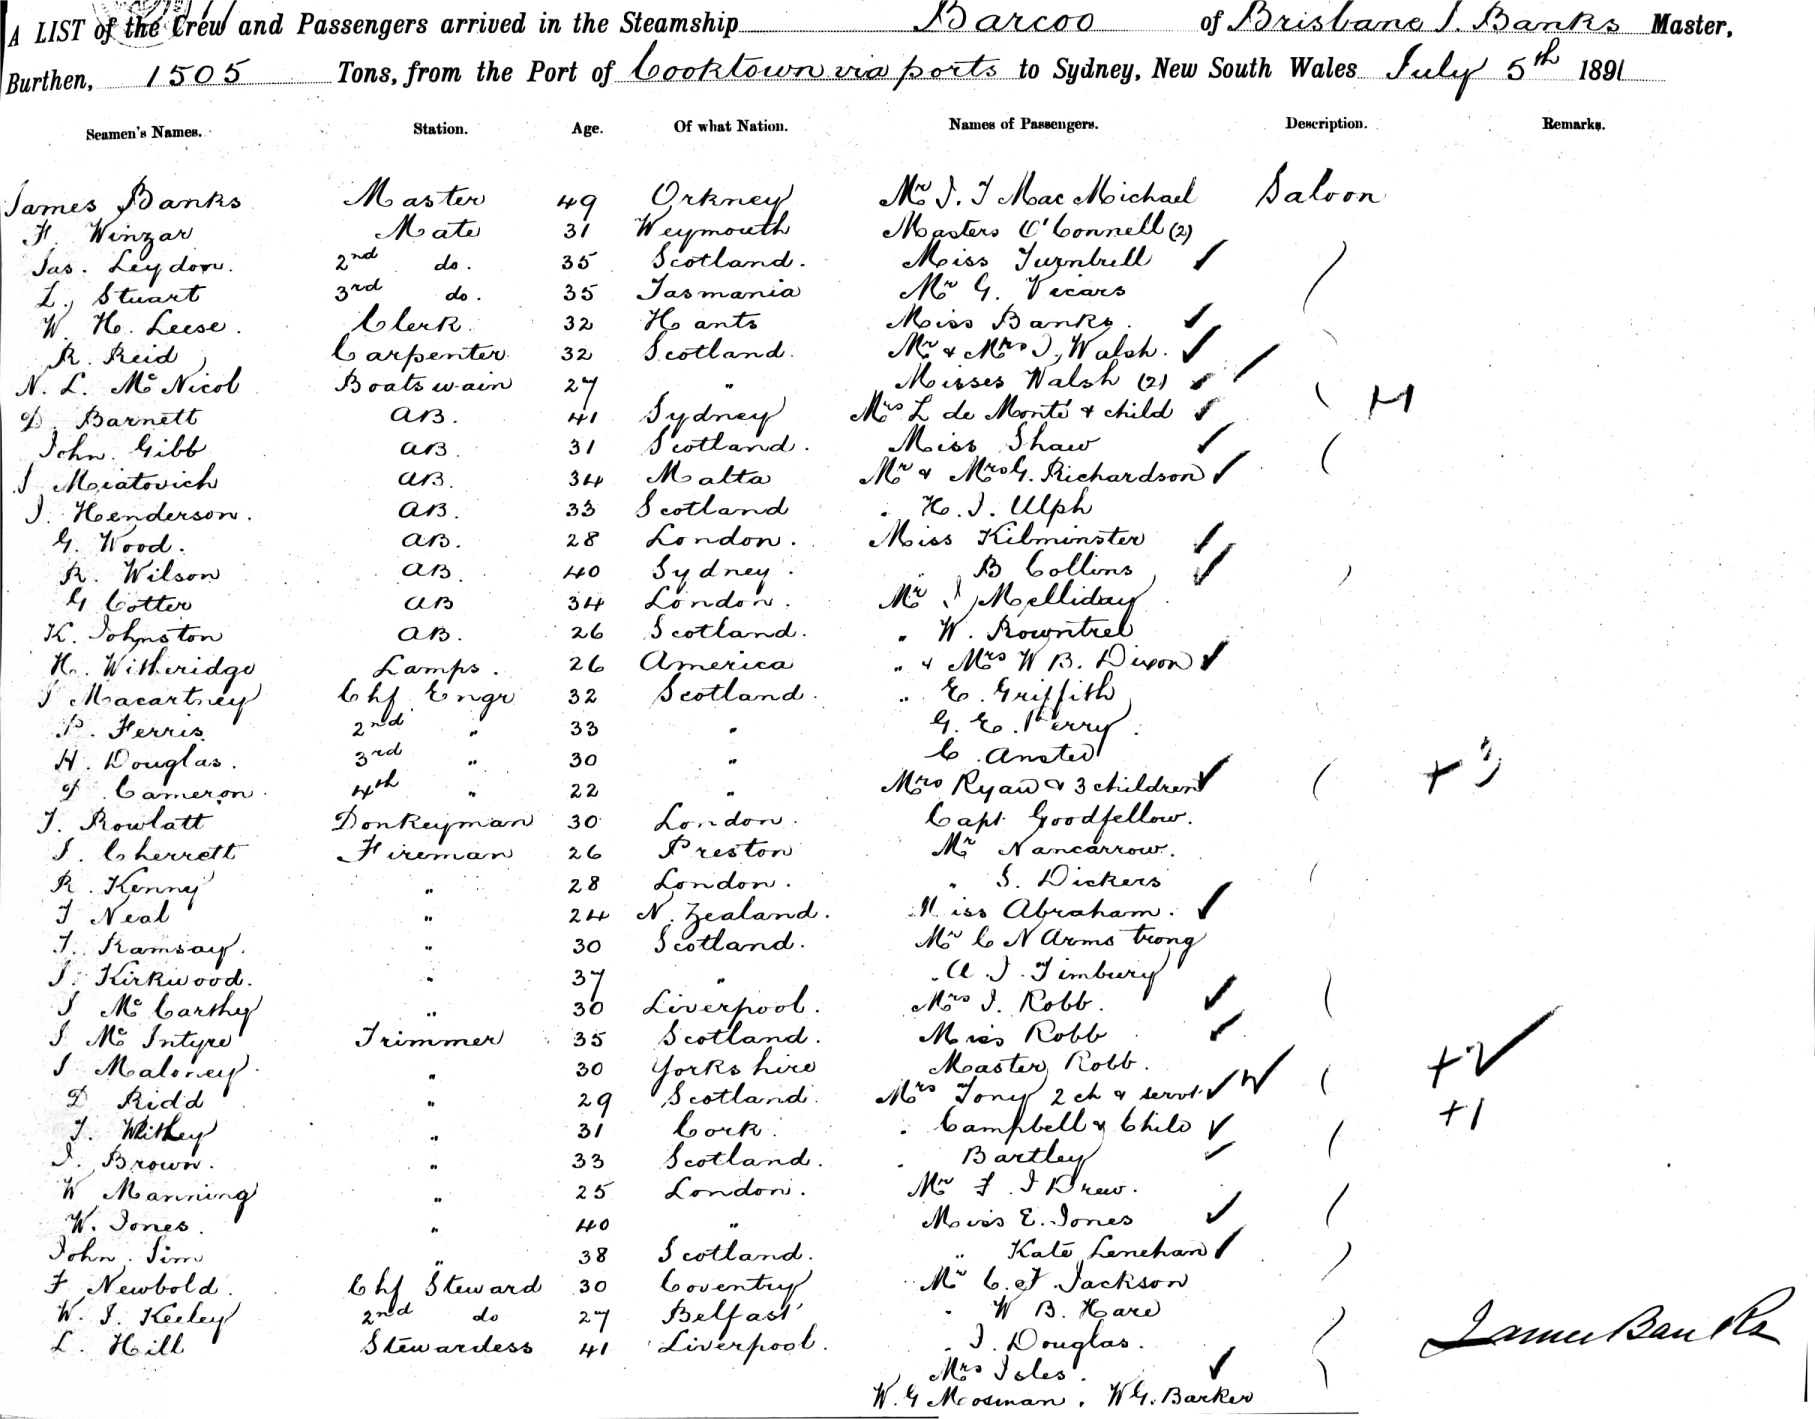 A LIST of the Crew and Passengers arrived in the Steamship Barcoo of Brisbane J. Banks Master,
Burthen, 1505 Tons, from the Port of Cooktown via ports to Sydney, New South Wales July 5th 1891
Seamen's Names. Station. Age. Of what Nation. Names of Passengers. Description. Remarks.
James Banks Master 49 Orkney Mr J. T Mac Michael Saloon
F. Winzar Mate 31 Weymouth Masters O'Connell (2)
Jas. Leydon. 2nd do. 35 Scotland. Miss Turnbull
L. Stuart 3rd do. 35 Tasmania Mr G. Vicars
W. H. Leese. Clerk. 32 Hants Miss Banks.
R. Reid Carpenter 32 Scotland. Mr & Mrs J. Walsh.
N. L. McNicol Boatswain 27 " Misses Walsh (2)
D. Barnett AB. 41 Sydney Mrs L de Monté & child H
John. Gibb AB. 31 Scotland. Miss Shaw
J Miatovich AB. 34 Malta Mr & Mrs G. Richardson
J. Henderson. AB. 33 Scotland " H. J. Ulph
G. Wood. AB. 28 London. Miss Kilminster
R. Wilson AB. 40 Sydney. " B Collins
G Cotter AB 34 London. Mr J Melliday
K. Johnston AB. 26 Scotland. " W. Rowntree
H. Witheridge Lamps. 26 America " & Mrs W B. Dixon
J Macartney Chf Engr 32 Scotland. " E. Griffith
P. Ferris 2nd " 33 " G. E. Perry.
H. Douglas. 3rd " 30 " C. Ansted
D. Cameron. 4th " 22 " Mrs Ryan & 3 children + 3
T. Rowlatt Donkeyman 30 London. Capt Goodfellow.
J. Cherrett Fireman 26 Preston Mr Nancarrow.
R. Kenny " 28 London. " S. Dickers
J Neal " 24 N. Zealand. Miss Abraham.
T. Ramsay. " 30 Scotland. Mr C N Armstrong
J. Kirkwood. " 37 " " A. J. Timbury
J McCarthy " 30 Liverpool. Mrs J. Robb.
J. McIntyre Trimmer 35 Scotland. Miss Robb
J Maloney. " 30 Yorkshire Master Robb. + 2
D Ridd " 29 Scotland. Mrs Tony 2 ch & servt
T. Withey " 31 Cork. " Campbell & Child +1
J. Brown. " 33 Scotland. " Bartley
W Manning " 25 London. Mr F. J Drew.
W. Jones. " 40 " Miss E. Jones
John. Sim " 38 Scotland. " Kate Lenehan
F Newbold. Chf Steward 30 Coventry Mr C. F. Jackson
W. J. Keeley 2nd do 27 Belfast " W B. Hare
L. Hill Stewardess 41 Liverpool. " J. Douglas. James Banks
Mrs Isles.
W. G Mosman. W G. Barker